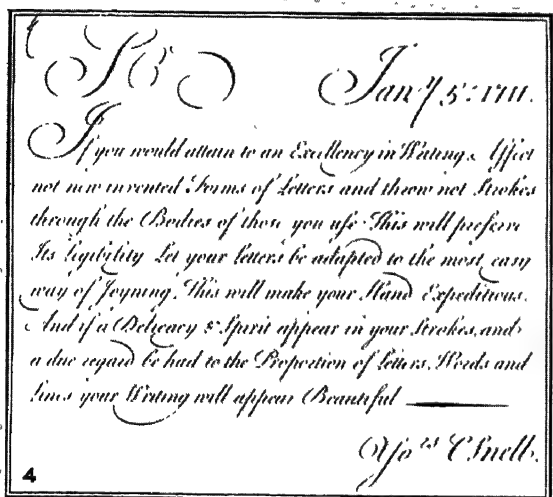 Sr
Jan.y 5.th 1711.
If you would attain to an Excellency in Writing, Affect
not new invented Forms of Letters and throw not Strokes
through the Bodies of those you use. This will preserve
Its Legibility Let your Letters be adapted to the most easy
way of Joyning, This will make your Hand Expeditious.
And if a Delicacy & Spirit appear in your Strokes, and
a due regard be had to the Proportion of Letters, Words and
Lines your Writing will appear Beautiful
Yo.rs C Snell.
4